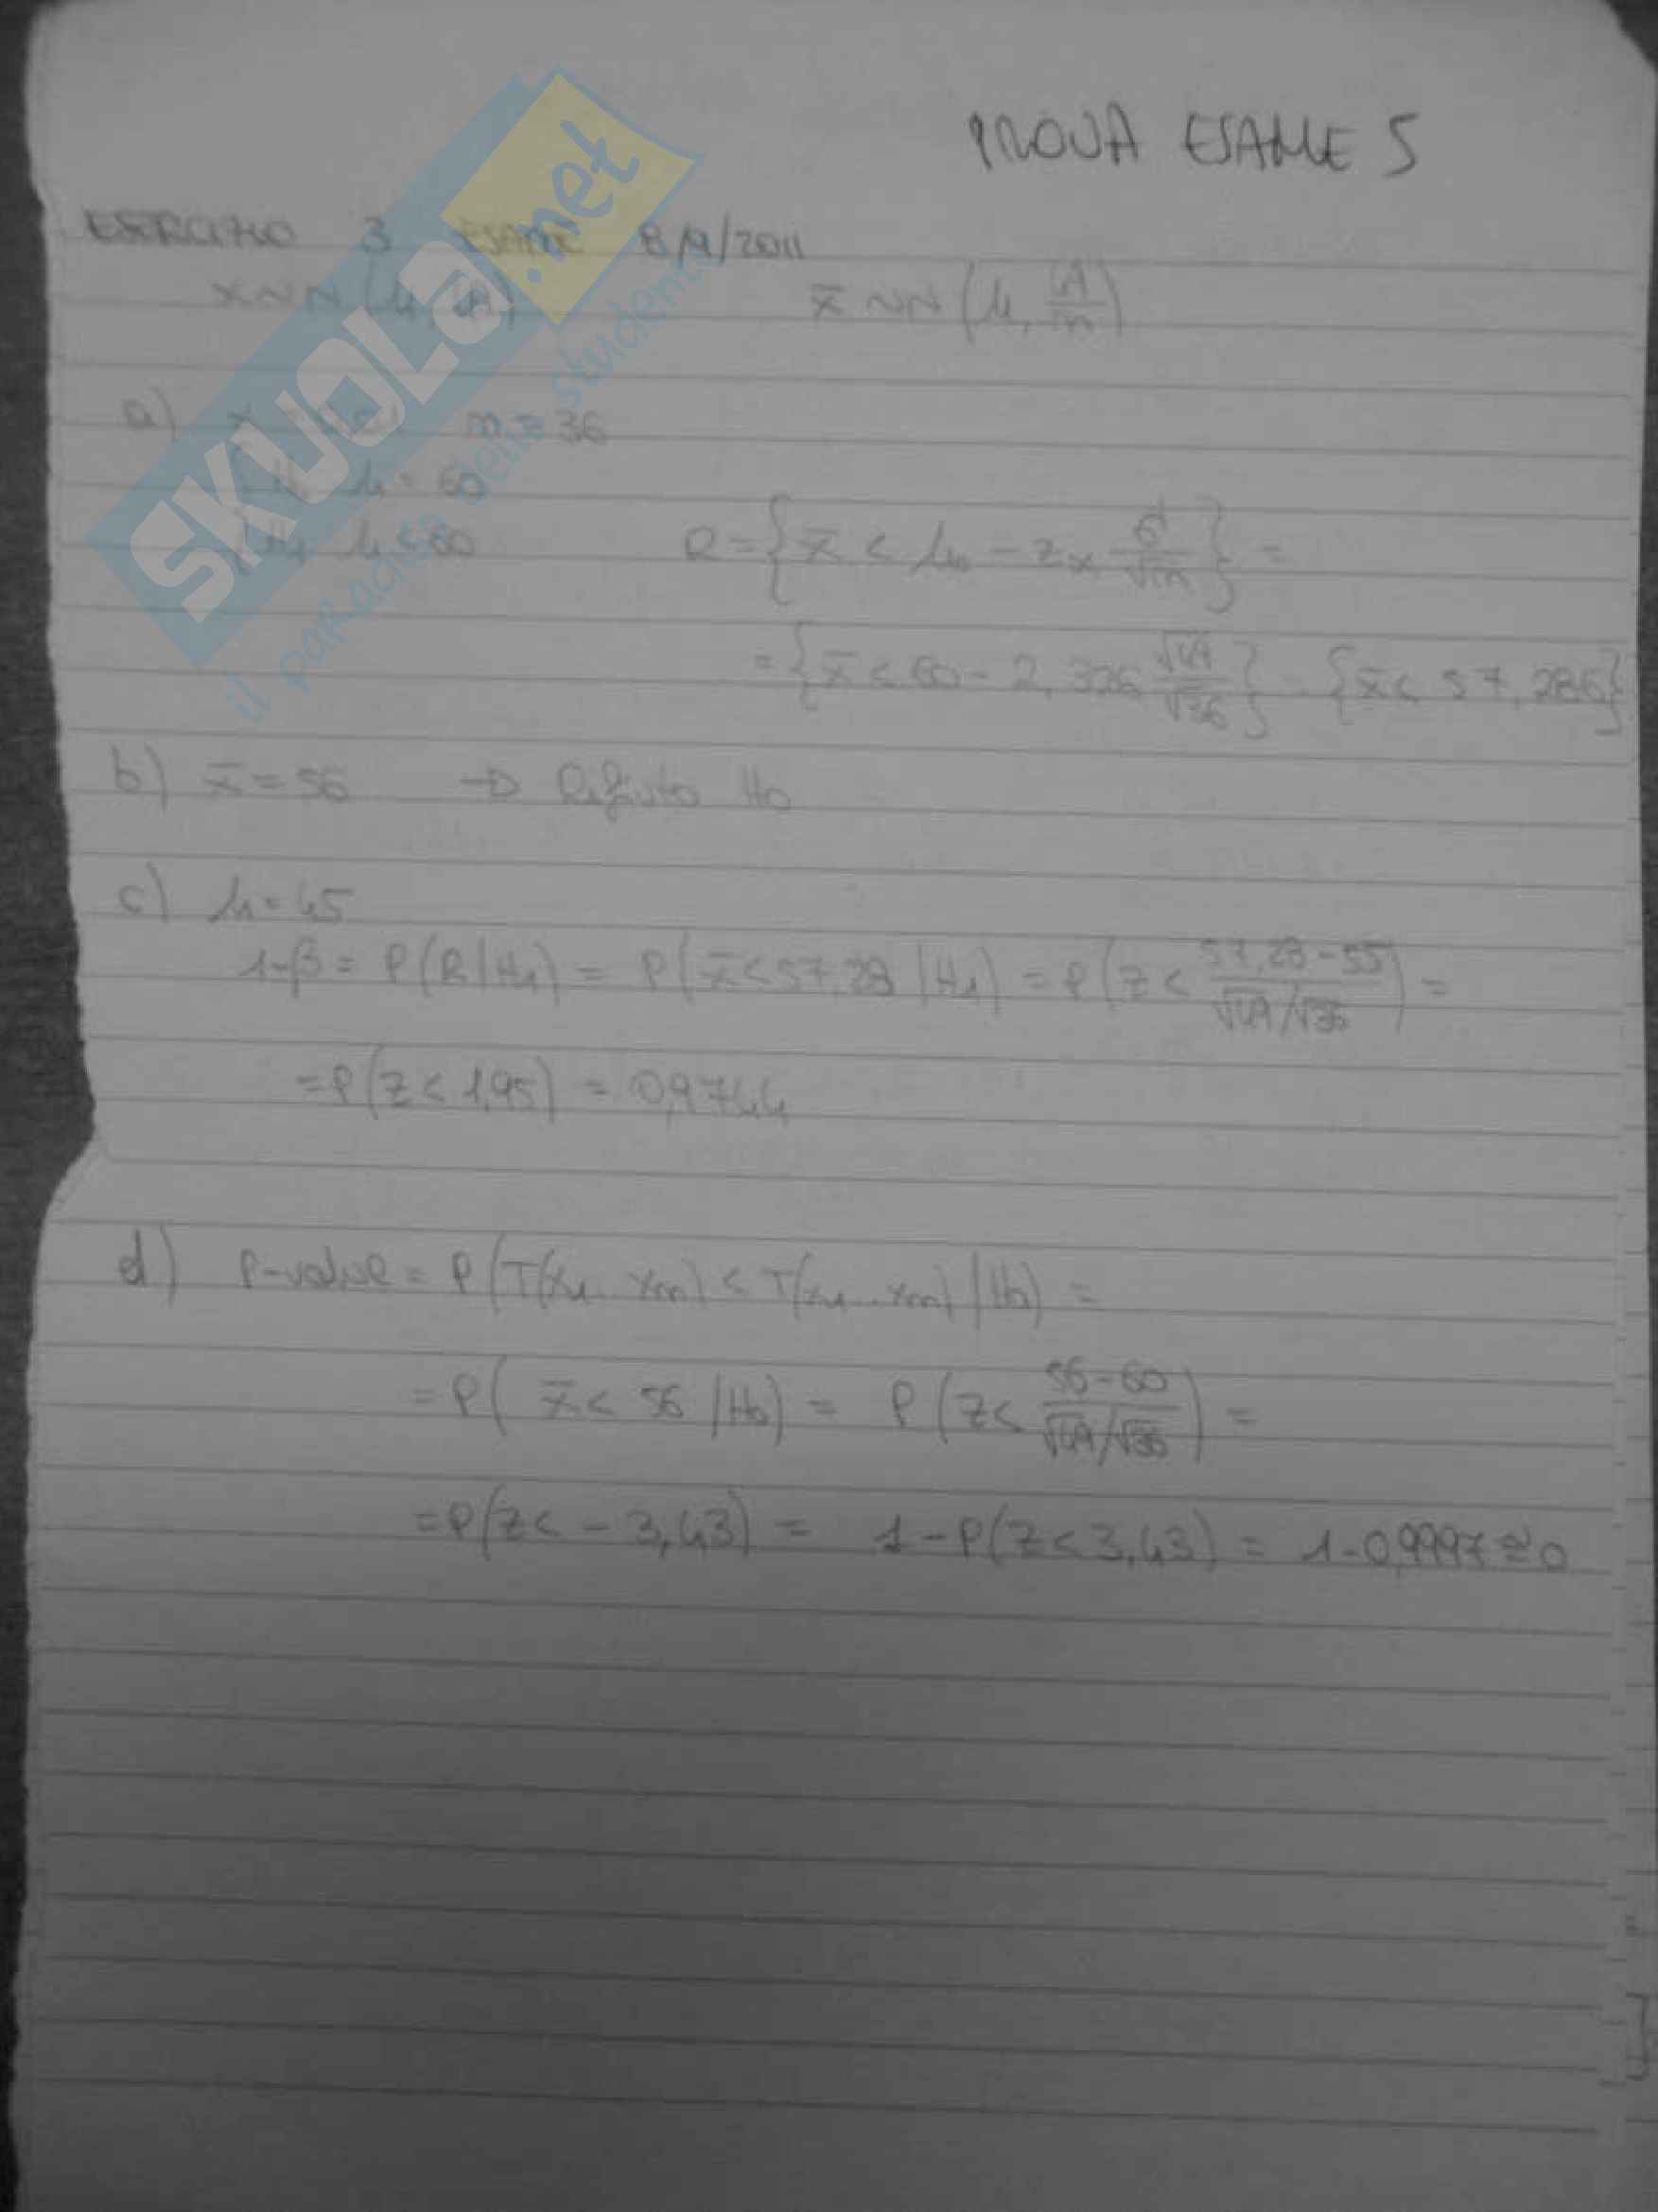 PROVA ESAME 5
ESERCIZIO 3 ESAME 8/9/2011
X ~ N (μ, 49) x̄ ~ N (μ, 49/n)
a) n = 36
H0 μ = 60
H1 μ < 60 R = { x̄ < μ0 - zα σ/√n } =
= { x̄ < 60 - 2,326 √49/√36 } = { x̄ < 57,286 }
b) x̄ = 56 → Rifiuto H0
c) μ = 45
1-β = P(R|H1) = P( x̄ < 57,28 | H1) = P( Z < 57,28 - 55 / √49/√36 ) =
= P( Z < 1,95) = 0,9744
d) P-value = P( T(x1...xn) < T(x1...xn) | H0) =
= P( x̄ < 56 | H0) = P( Z < 56 - 60 / √49/√36 ) =
= P( Z < - 3,43) = 1 - P(Z < 3,43) = 1 - 0,9997 ≅ 0
SKUOLA.net
il paradiso dello studente